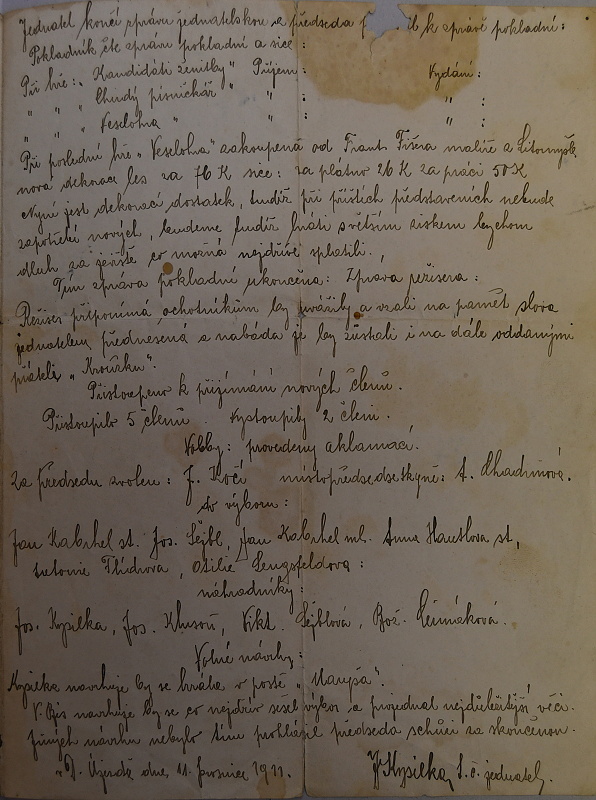 Jednatel končí zprávu jednatelskou a předseda k zprávě pokladní:
Pokladník čte zprávu pokladní a sice:
Při hře: „Kandidáti ženitby" Příjem: Vydání:
" " „Chudý písničkář" " : " :
" " „Veselohra" " : " :
Při poslední hře „Veselohra" zakoupena od Frant. Fišera malíře z Litomyšle
nová dekorace les za 76 K sice: za plátno 26 K za práci 50 K
Nyní jest dekorací dostatek, tudíž při příštích představeních nebude
zapotřebí nových, budeme tudíž hráti s větším ziskem bychom
dluh za jeviště co možná nejdříve splatili.
Tím zpráva pokladní ukončena: Zpráva režisera:
Režiser připomíná ochotníkům by uvážily a vzali na paměť slova
jednatelem přednesená a nabádá je by zůstali i na dále oddanými
přáteli „Kroužku".
Přistoupeno k přijímání nových členů.
Přistoupilo 5 členů. Vystoupily 2 členi.
Volby: provedeny aklamací.
Za předsedu zvolen: J. Kočí místopředsedseškyně: A.
do výboru:
Jan Kabrhel st. Jos. Sejbl, Jan Kabrhel ml. Anna st,
Antonie, Otilie Lengsfeldova:
náhradníky:
Jos. Kysilka, Jos. Klusoň, Vikt. Sejblová, Bož.
Volné návrhy:
Kysilka navrhuje by se hrálo v postě „Maryša".
V. navrhuje by se co nejdřív sešel výbor a projednal nejdůležitější věci.
Jiných návrhu nebylo tím prohlásil předseda schůzi za skončenou.
D. Újezdě dne 11. prosince 1911. J Kysilka t. č. jednatel.